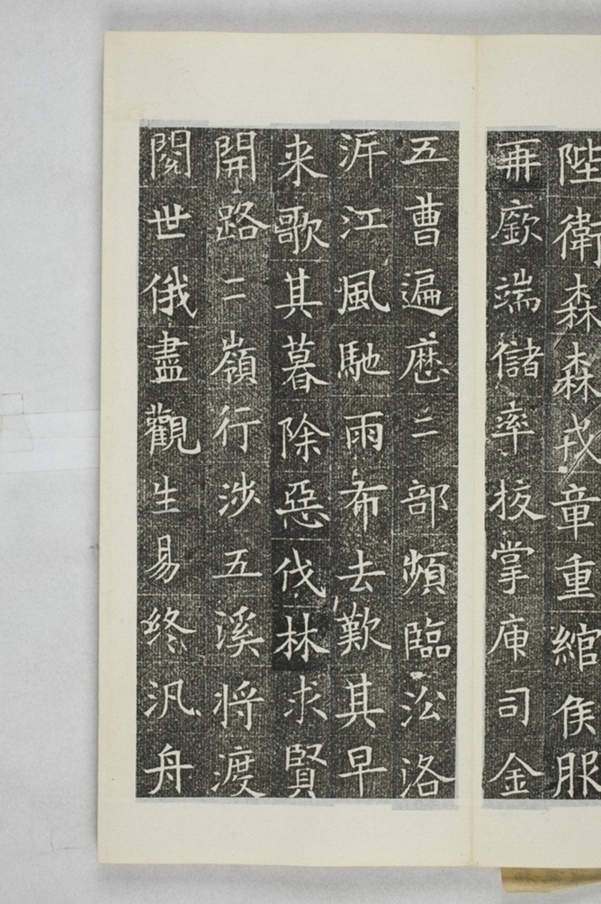 陛衛森森戎章重綰侯服
再廞端儲率校掌庫司金
五曹遍歷二部頻臨㳂洛
泝江風馳雨布去歎其早
来歌其暮除惡伐林求賢
開路二嶺行涉五溪将渡
閱世俄盡觀生易終汎舟